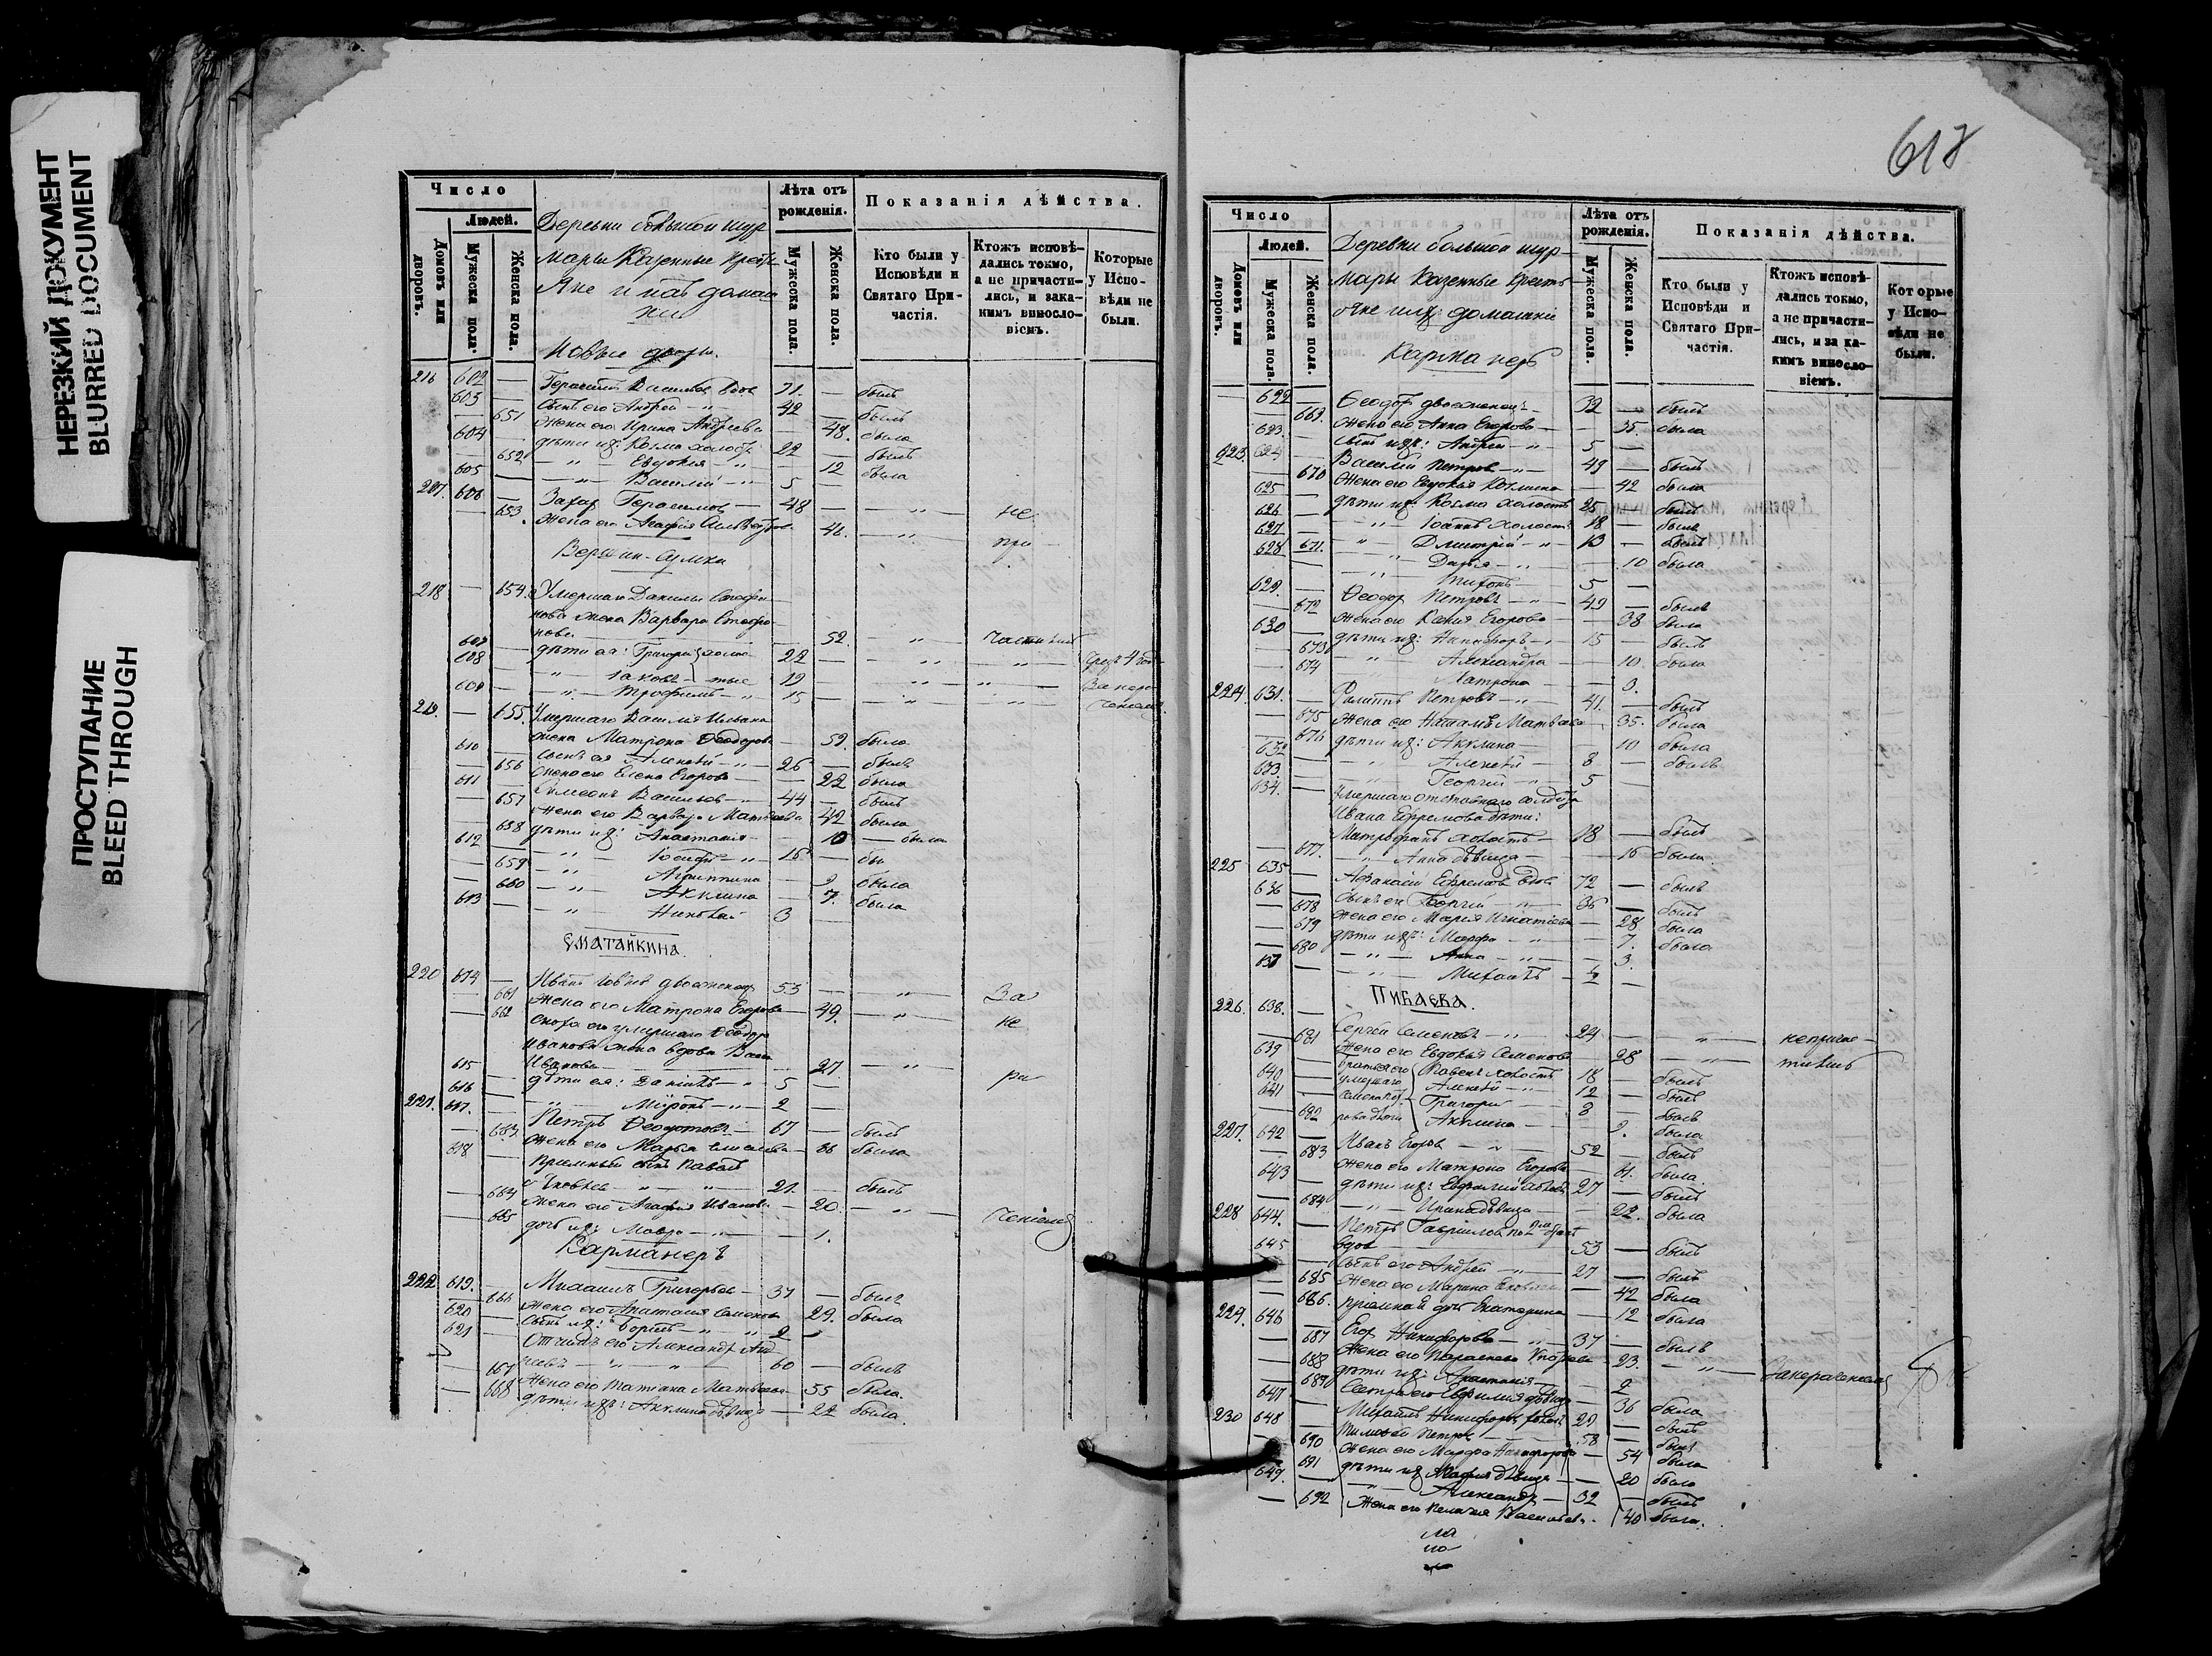 НЕРЕЗКИЙ ДОКУМЕНТ
BLURRED DOCUMENT
ПРОСТУПАНИЕ
BLEED THROUGH
Число
Людей.
Домовъ или дворовъ.
Мужеска пола.
Женска пола.
Деревни большой шур
мары Казенные крестья
Яне и ихъ домаш
ніе
Новые дворы.
Лѣта отъ рожденія.
Мужеска пола.
Женска пола.
Показанія дѣйства.
Кто были у Исповѣди и Святаго Причастія.
Ктожъ исповѣдались токмо, а не причастились, и закакимъ винословіемъ.
Которые у Исповѣди не были.
216 602 — Герасимъ Василіевъ вдов 71. — былъ
603 — Сынъ его Андрей 42 — былъ
— 651 Жена его Ирина Андреева — 48. была
604 — дѣти ихъ: Козма холостъ 22 — былъ
— 652 Евдокія — 12 была
605 — Василій 5 —
217. 606 — Захаръ Герасимовъ 48 — не
— 653. Жена его Агафія — 46. — при
Вершин-сумки
218 — 654. Умершаго Данилы Стефа
нова жена Варвара Стефа
нова — 52 — частился
607 — дѣти ея: Григорій холос 22 —
608 — Іаковъ тые 19 —
609 — Трофимъ 15 —
219. — 655. Умершаго Василія
жена Матрона Феодорова — 59. была
610 — Сынъ ея Алексѣй 26 — былъ
— 656 Жена его Елена Егорова — 22 была
611 — Симеонъ Васильевъ 44 — былъ
— 657 Жена его Варвара Матвѣева — 42 была
— 658 дѣти ихъ: Анастасія — 10 — была
612 — Іосифъ 16 — бы
— 659 Агриппина — 9 была
— 660 Акилина — 7. была
613 — Николай 3
Єматайкина.
220 614 — Иванъ двоеженецъ 55 — За
— 661 Жена его Матрона Егорова — 49. — не
— 662 Сноха его умершаго Феодора
Иванова жена вдова
Иванова — 27 — ра
615 — дѣти ея: Даніилъ 5 —
616 — Миронъ 2 —
221. 617. — Петръ Феодотовъ 67 — былъ
— 663. Жена его Марья — 66 была
618 — Пріемный сынъ Павелъ
Яковлев 21. — былъ
— 664 Жена его Агафія Иванова — 20. — ченіемъ
— 665 дочь ихъ: Мавра — 1.
Карманеръ
222 619. — Михаилъ Григорьев 31 — былъ
— 666 Жена его Анастасія Семенова — 29. была
620 — Сынъ ихъ: Борисъ 2 —
621 — Отчимъ его Александръ Анд
реевъ 60 — былъ
— 667 Жена его Татіана Матвѣева — 55 была
— 668 дѣти ихъ: Акилина дѣвица — 22 была.
618
Число
Людей.
Домовъ или дворовъ.
Мужеска пола.
Женска пола.
Деревни большой шур
мары Казенные Кресть
яне ихъ домашніе
Карманеръ
Лѣта отъ рожденія.
Мужеска пола.
Женска пола.
Показанія дѣйства.
Кто были у Исповѣди и Святаго Причастія.
Ктожъ исповѣдались токмо, а не причастились, и за какимъ винословіемъ.
Которые у Исповѣди не были.
622 — Феодоръ двоеженецъ 32 — былъ
— 669. Жена его Анна Егорова — 35. была
623. — Сынъ ихъ: Андрей 5 —
223. 624 — Василій Петровъ 49 — былъ
— 670 Жена его Евдокія Козмина — 42 была
625 — дѣти ихъ: Козма холостъ 25 — былъ
626 — Іоаннъ холостъ 18 — былъ
627 — Дмитрій 13 — былъ
— 671. Дарья — 10 была
628 — Тихонъ 5 —
629. — Феодоръ Петровъ 49 — былъ
— 672 Жена его Ксенія Егорова — 38 была
630 — дѣти ихъ: Никифоръ 15 — былъ
— 673 Александра — 10. была
— 674 Матрона — 3.
224 631. — Филиппъ Петровъ 41. — былъ
— 675 Жена его Матвѣева — 35. была
— 676 дѣти ихъ: Акилина — 10 была
632 — Алексѣй 8 — былъ
633. — Георгій 5 —
634. — Умершаго отставнаго солдата
Ивана Ефремова дѣти:
Митрофанъ холостъ 18 — былъ
— 677. Анна дѣвица — 16 была.
225 635 — Афанасій Ефремовъ вдовъ 72 — былъ
636 — Сынъ его Георгій 36 — былъ
— 678 Жена его Марія Игнатіева — 28. была
— 679 дѣти ихъ: Марфа — 7. была
— 680 Анна — 3.
637 — Михаилъ —
ПИБАЄВА.
226. 638. — Сергѣй Семеновъ 24 — непричас
— 681 Жена его Евдокія Семенова — 28 — тились
639 — Братья его Павелъ холостъ 18 — былъ
640 — умершаго Алексѣй 12 — былъ
641 — Григорій 8 — былъ
— 682 Акилина — 9. была
227. 642 — Иванъ Егоров 52 — былъ
— 683 Жена его Матрона Егорова — 61. была.
643 — дѣти ихъ: 27 — былъ
— 684 Ирина дѣвица — 22. была
228 644. — Петръ Гавріиловъ
вдов 53 — былъ
645 — Сынъ его Андрей 27 — былъ
— 685 Жена его Марина — 42 была
— 686. Пріемная дочь Екатерина — 12 была
229. 646 — Егоръ Никифоровъ 37 — былъ
— 687 Жена его Параскева — 23. —
— 688 дѣти ихъ: Анастасія — 2
— 689 Сестра его Евфимія дѣвица — 36 была
647 — Михаилъ Никифоровъ холост 29 — былъ
230 648 — Тимофей Петровъ 58 — былъ
— 690 Жена его Марфа Никифорова — 54 была
— 691 дѣти ихъ Марфа дѣвица — 20 была
649. — Александръ 32 — былъ
— 692 Жена его Пелагія Васильева — 40 была.